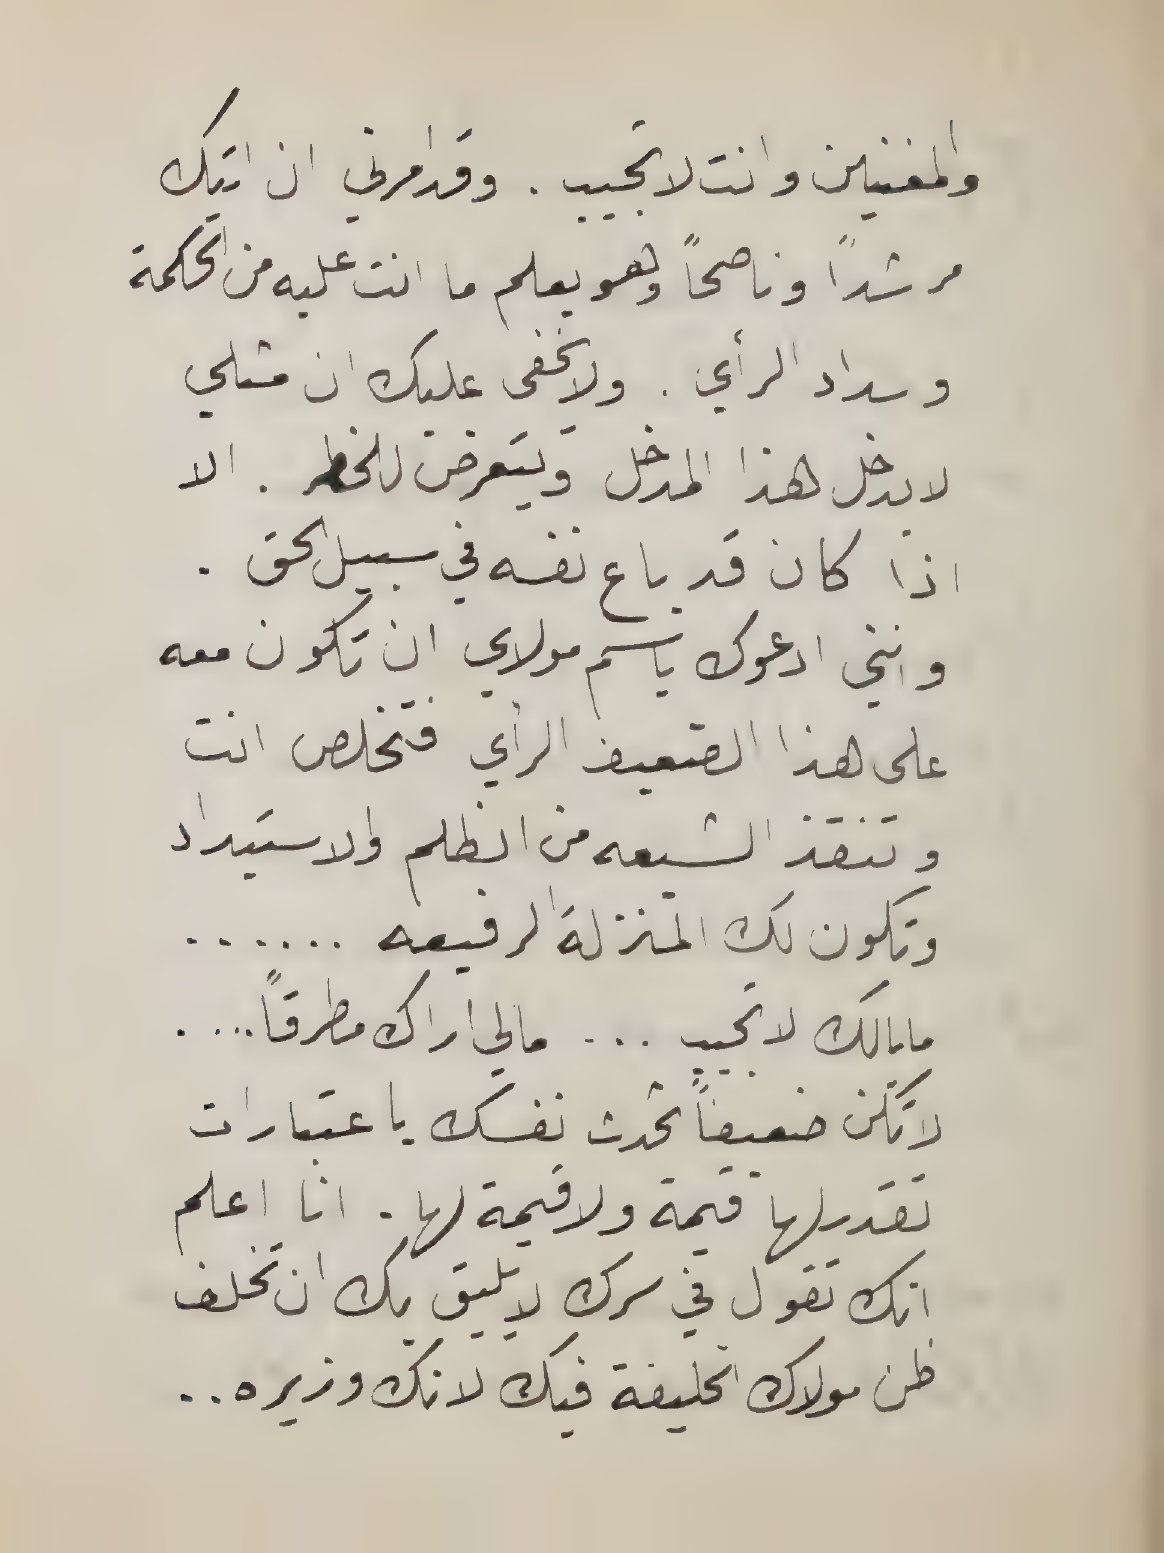 والمغنيين وانت لا تجيب . وقد امرني ان اتيك
مرشداً وناصحاً وهو يعلم ما انت عليه من الحكمة
وسداد الرأي . ولا تخفى عليك ان مثلي
لا يدخل هذا المدخل ويتعرض للخطر . الا
اذا كان قد باع نفسه في سبيل الحق .
وانني ادعوك باسم مولاي ان تكون معه
على هذا الضعيف الرأي فتخلص انت
وتنقذ الشيعه من الظلم والاستبداد
وتكون لك المنزلة الرفيعه .......
ما بالك لا تجيب ... مالي أراك مطرقاً ....
لا تكن ضعيفاً تحدث نفسك باعتبارات
تقدر لها قيمة ولا قيمة لها . انا اعلم
انك تقول في سرك لا يليق بك ان تخلف
ظن مولاك الخليفة فيك لانك وزيره ..